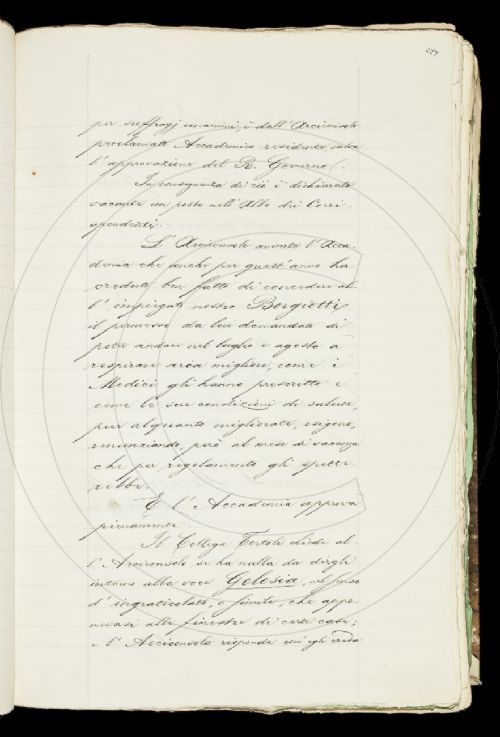 257
per suffragj unanimi, è dall'Arciconsolo
proclamato Accademico residente salva
l'approvazione del R. Governo.
In conseguenza di ciò è dichiarato
vacante un posto nell'Albo dei Corri-
spondenti.
L'Arciconsolo avverte l'Acca-
demia che anche per quest'anno ha
creduto ben fatto di concedere al-
l'impiegato nostro Bergiotti
il permesso da lui domandato di
poter andare nel luglio e agosto a
respirare aria migliore, come i
Medici gli hanno prescritto e
come le sue condizioni di salute,
pur alquanto migliorate, esigono,
rinunziando, però al mese di vacanza
che per regolamento gli spette-
rebbe.
E l'Accademia approva
pienamente.
Il Collega Tortoli chiede al-
l'Arciconsolo se ha nulla da dirgli
intorno alla voce Gelosia, nel senso
d'ingraticolato, o simile, che appo-
nevasi alle finestre di certe case;
e l'Arciconsolo risponde com'egli creda